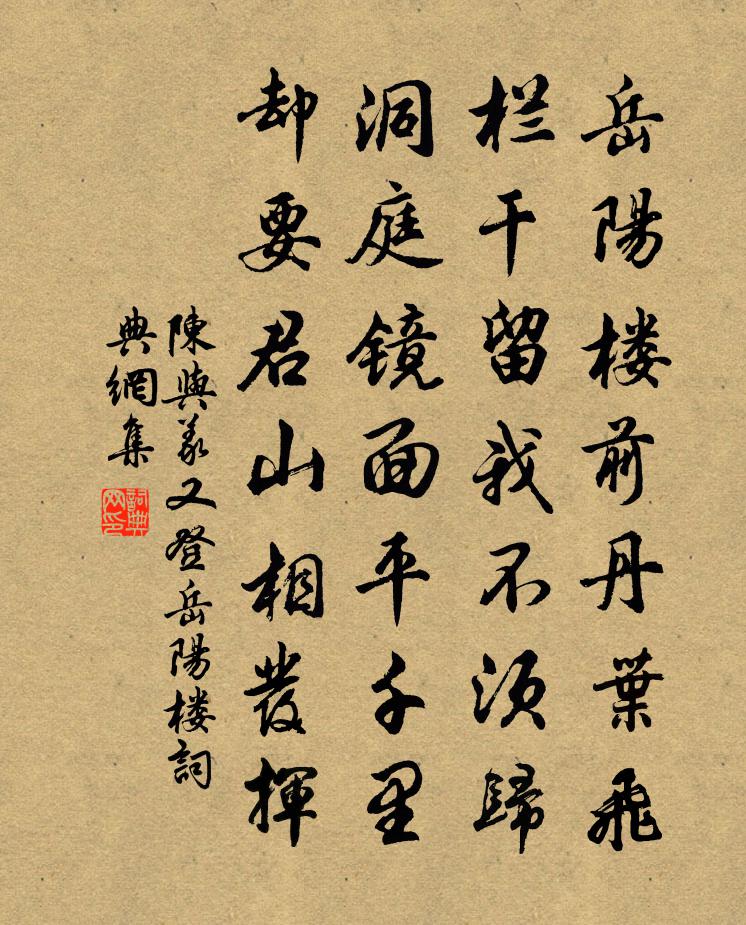 岳陽楼前丹葉飛
栏干留我不须歸
洞庭镜面平千里
却要君山相發揮
陳與義又登岳陽楼詞
典網集
詞典
网印